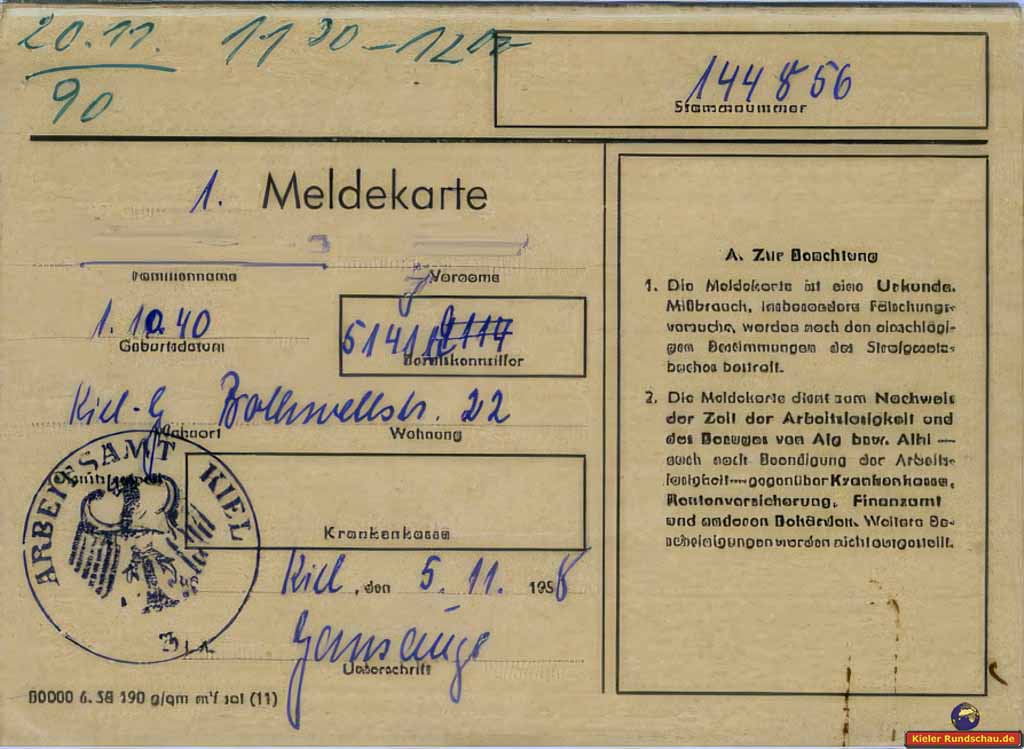 20.11. 11 30 - 12 00
90
144 856
Stammnummer
1. Meldekarte
Familienname Vorname
1.10.40
Geburtsdatum
5141
Berufskennziffer
Kiel-G Bothwellstr. 22
Wohnort Wohnung
Krankenkasse
ARBEITSAMT KIEL
Kiel, den 5. 11. 1958
Unterschrift
80000 6. 58 190 g/qm m'f sat (11)
A. Zur Beachtung
1. Die Meldekarte ist eine Urkunde.
Mißbrauch, insbesondere Fälschungs-
versuche, werden nach den einschlägi-
gen Bestimmungen des Strafgesetz-
buches bestraft.
2. Die Meldekarte dient zum Nachweis
der Zeit der Arbeitslosigkeit und
des Bezuges von Alg bzw. Alhi —
auch nach Beendigung der Arbeits-
losigkeit — gegenüber Krankenkasse,
Rentenversicherung, Finanzamt
und anderen Behörden. Weitere Be-
scheinigungen werden nicht ausgestellt.
Kieler Rundschau.de